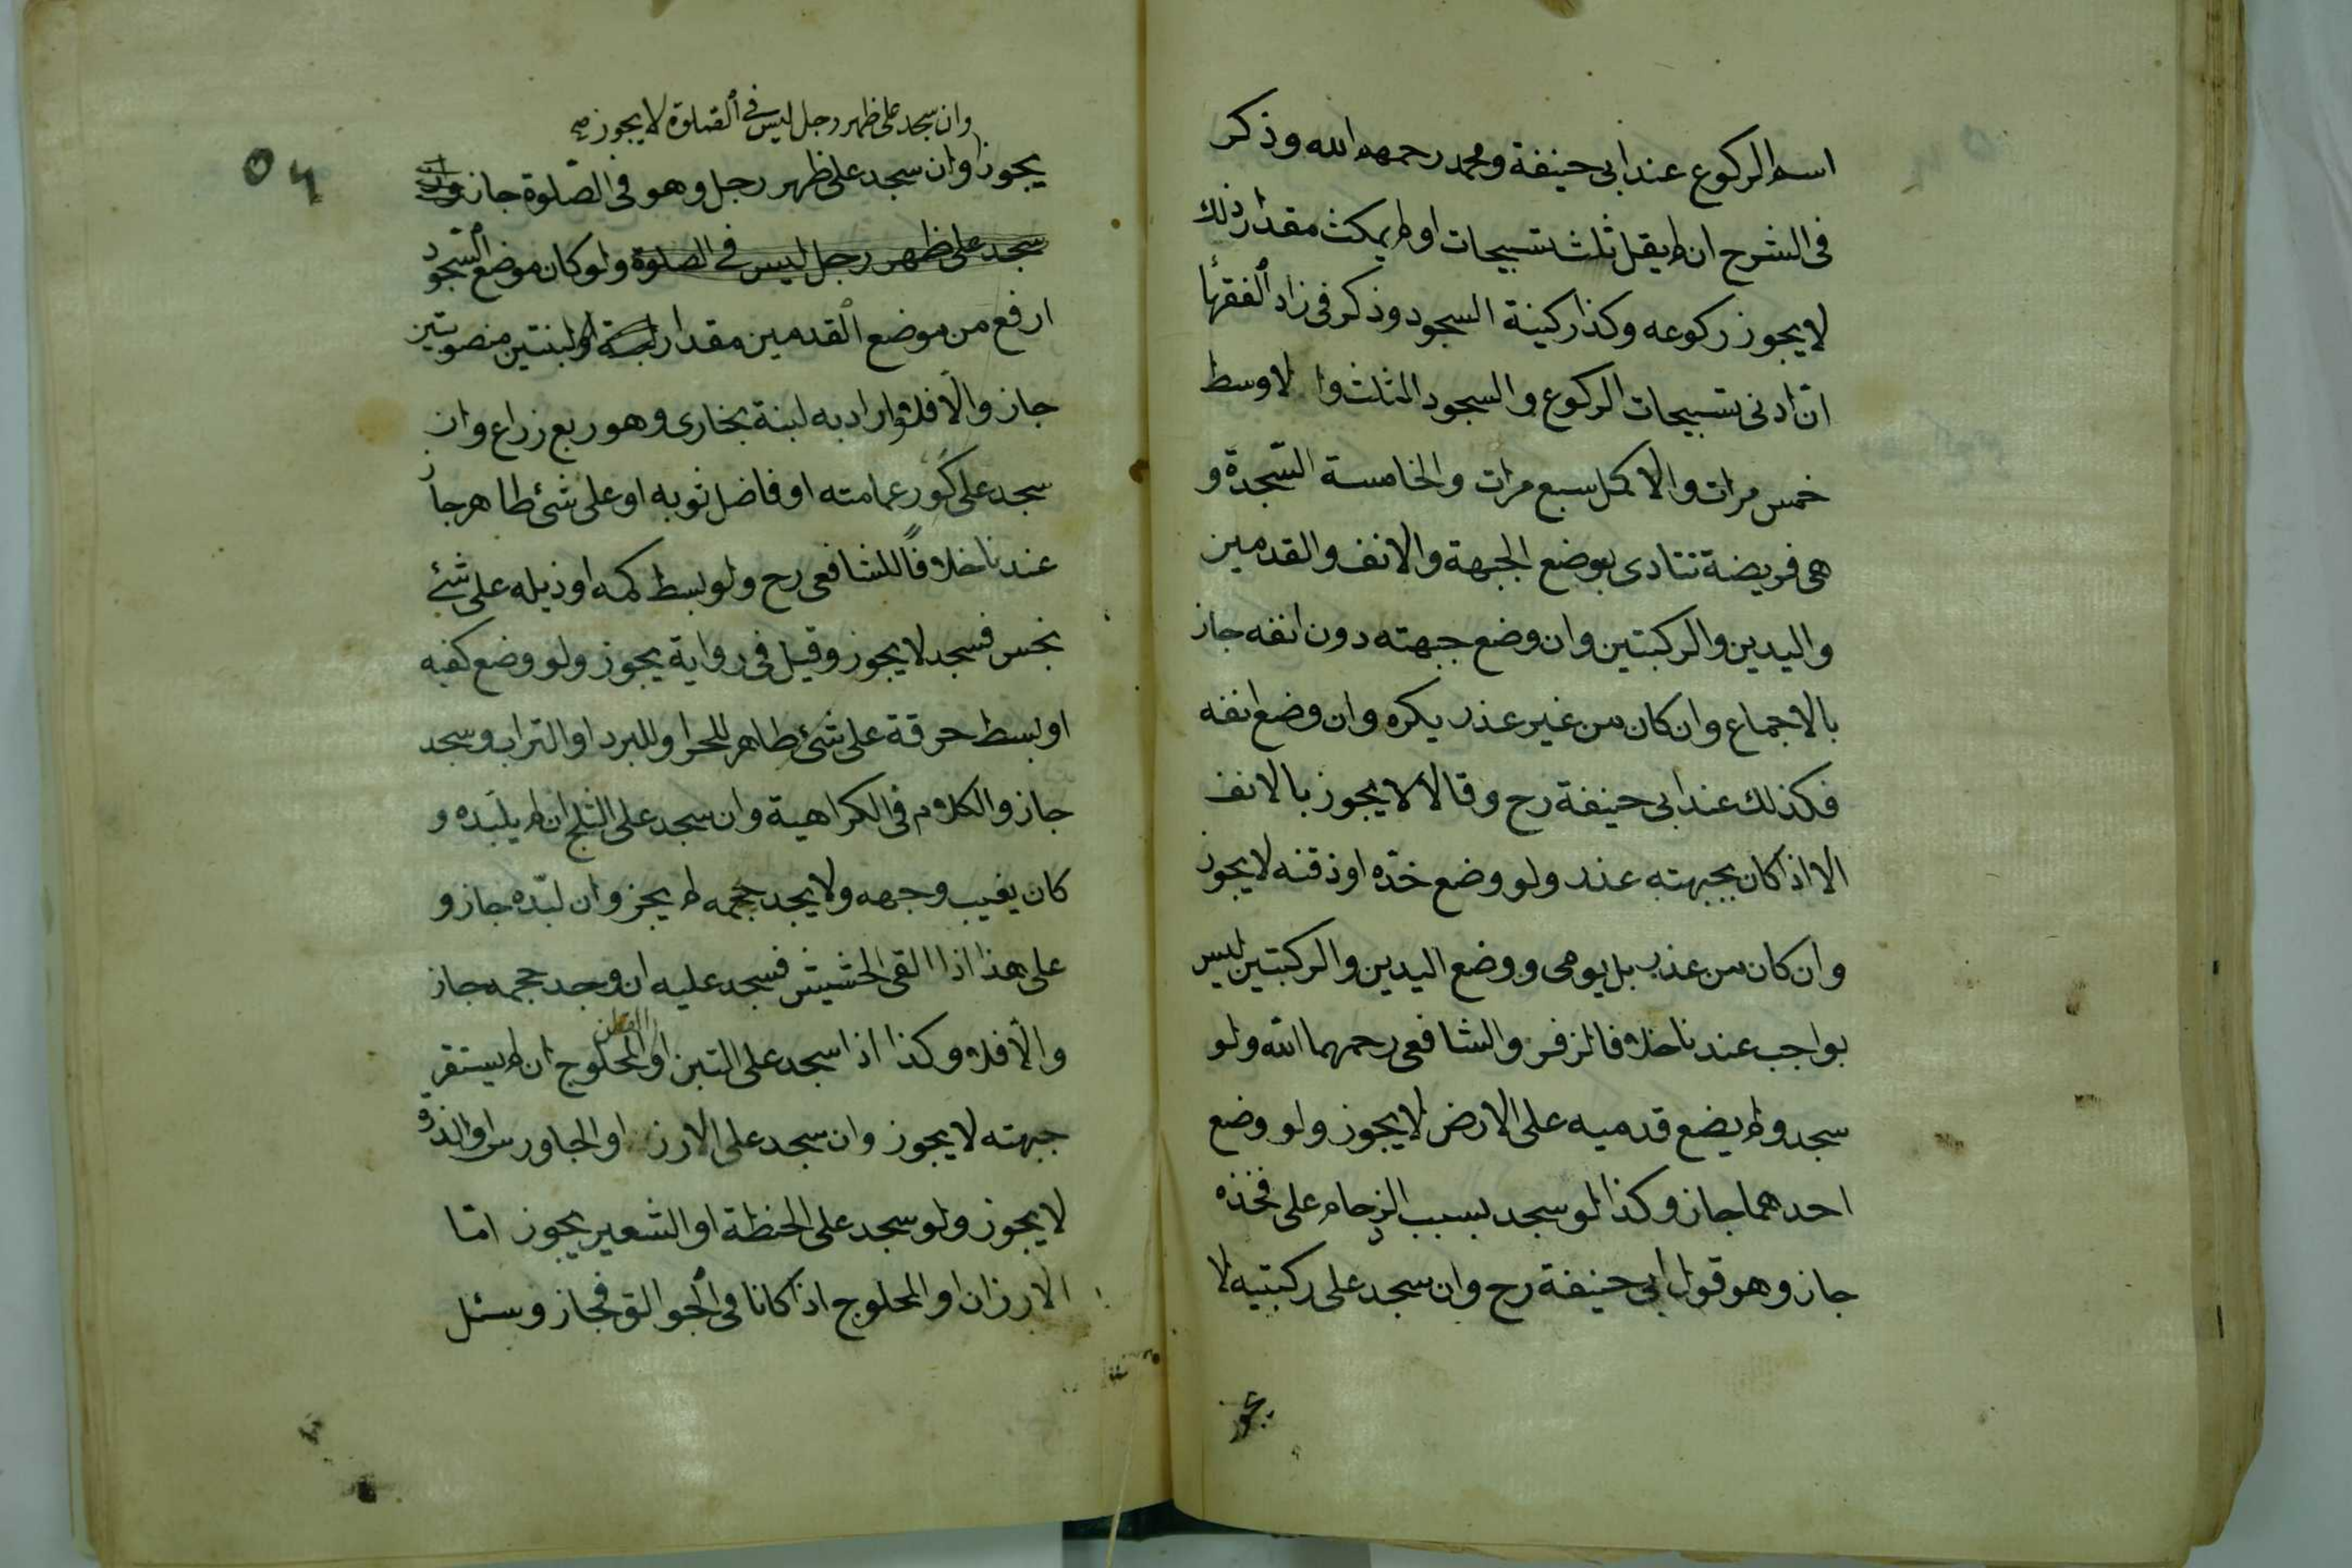 اسم الركوع عند ابى حنيفة ومحمد رحمهم الله وذكر
فى الشرح ان لم يقل ثلث تسبيحات او لم يمكث مقدار ذلك
لا يجوز ركوعه وكذا ركينة السجود وذكر فى زاد الفقهأ
انّ ادنى تسبيحات الركوع والسجود الثلث والاوسط
خمس مرات والاكمل سبع مرات والخامسة السّجدة و
هى فريضة تتادى بوضع الجبهة والانف والقدمين
واليدين والركبتين وان وضع جبهته دون انفه جاز
بالاجماع وان كان من غير عذر يكره وان وضع انفه
فكذلك عند ابى حنيفة رح وقالا لا يجوز بالانف
الا اذا كان بجبهته عذر ولو وضع خدّه او ذقنه لا يجوز
وان كان من عذر بل يومى ووضع اليدين والركبتين ليس
بواجب عندنا خلافا لزفر والشافعى رحمهما الله ولو
سجد ولم يضع قدميه على الارض لا يجوز ولو وضع
احدهما جاز وكذا لو سجد بسبب الزحام على فخذه
جاز وهو قول ابى حنيفة رح وان سجد على ركبتيه لا
يجوز
وان سجد على ظهر رجل ليس فى الصلوة لا يجوز صح
٥٤
يجوز وان سجد على ظهر رجل وهو فى الصّلوة جاز وان
سجد على ظهر رجل ليس فى الصلوة ولو كان موضع السّجود
ارفع من موضع القدمين مقدار لبنة او لبنتين منصوبتين
جاز والّا فلا واراد به لبنة بخارى وهو ربع زراع وان
سجد على كَور عمامته او فاضل ثوبه او على شئ طاهر جاز
عندنا خلافاً للشافعى رح ولو بسط كمه او ذيله على شئ
نجس فسجد لا يجوز وقيل فى رواية يجوز ولو وضع كفيه
او بسط خرقة على شئ طاهر للحر او للبرد او التراب وسجد
جاز والكلام فى الكراهية وان سجد على الثلج ان لم يلبّده و
كان يغيب وجهه ولا يجد حجمه لم يجز وان لبّده جاز و
على هذا اذا القى الحشيش فسجد عليه ان وجد حجمه جاز
والّا فلا وكذا اذا سجد على التبن او القطن المحلوج ان لم يستقر
جبهته لا يجوز وان سجد على الارز او الجاورس او الذرة
لا يجوز ولو سجد على الحنطة او الشعير يجوز امّا
الارزان او المحلوج اذا كانا فى الجوالق فجاز وسئل